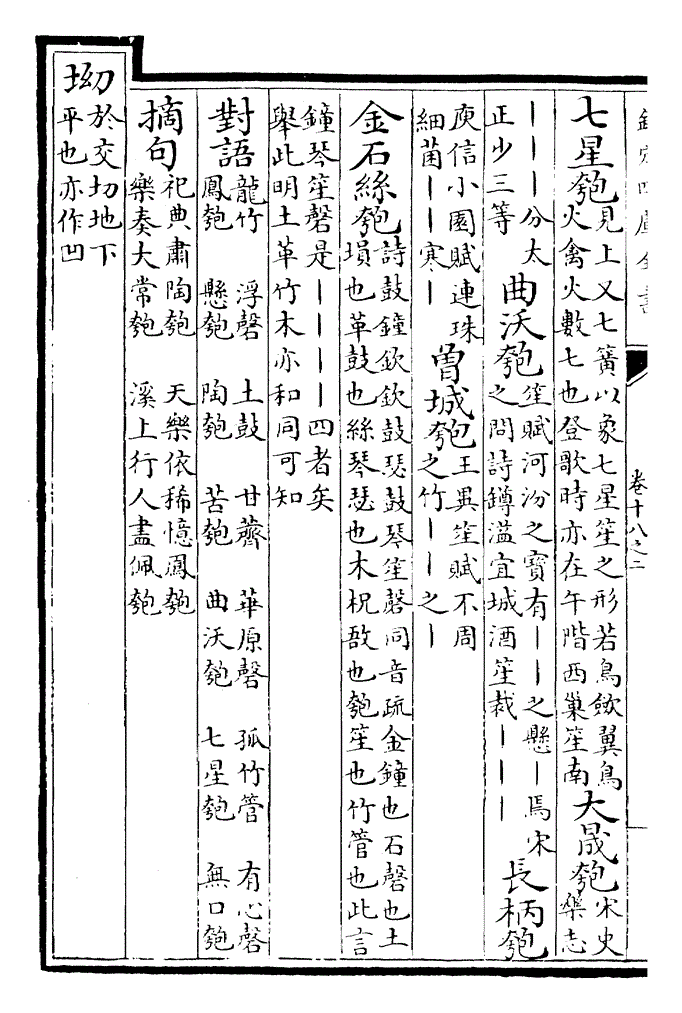 欽定四庫全書
卷十八之二
七星匏
見上又七簧以象七星笙之形若鳥斂翼鳥
火禽火數七也登歌時亦在午階西巢笙南
大晟匏
宋史
樂志
｜｜｜分太
正少三等
曲沃匏
笙賦河汾之寶有｜｜之懸｜焉宋
之問詩鐏溢宜城酒笙裁｜｜｜
長柄匏
庾信小園賦連珠
細菌｜｜寒｜
曾城匏
王異笙賦不周
之竹｜｜之｜
金石絲匏
詩鼓鐘欽欽鼓瑟鼓琴笙磬同音疏金鐘也石磬也土
塤也革鼓也絲琴瑟也木柷敔也匏笙也竹管也此言
鐘琴笙磬是｜｜｜｜四者矣
舉此明土革竹木亦和同可知
對語
龍竹　浮磬　土鼓　甘薺　華原磬　孤竹管　有心磬
鳳匏　懸匏　陶匏　苦匏　曲沃匏　七星匏　無口匏
摘句
祀典肅陶匏　天樂依稀憶鳳匏
樂奏大常匏　溪上行人盡佩匏
坳
於交切地下
平也亦作凹